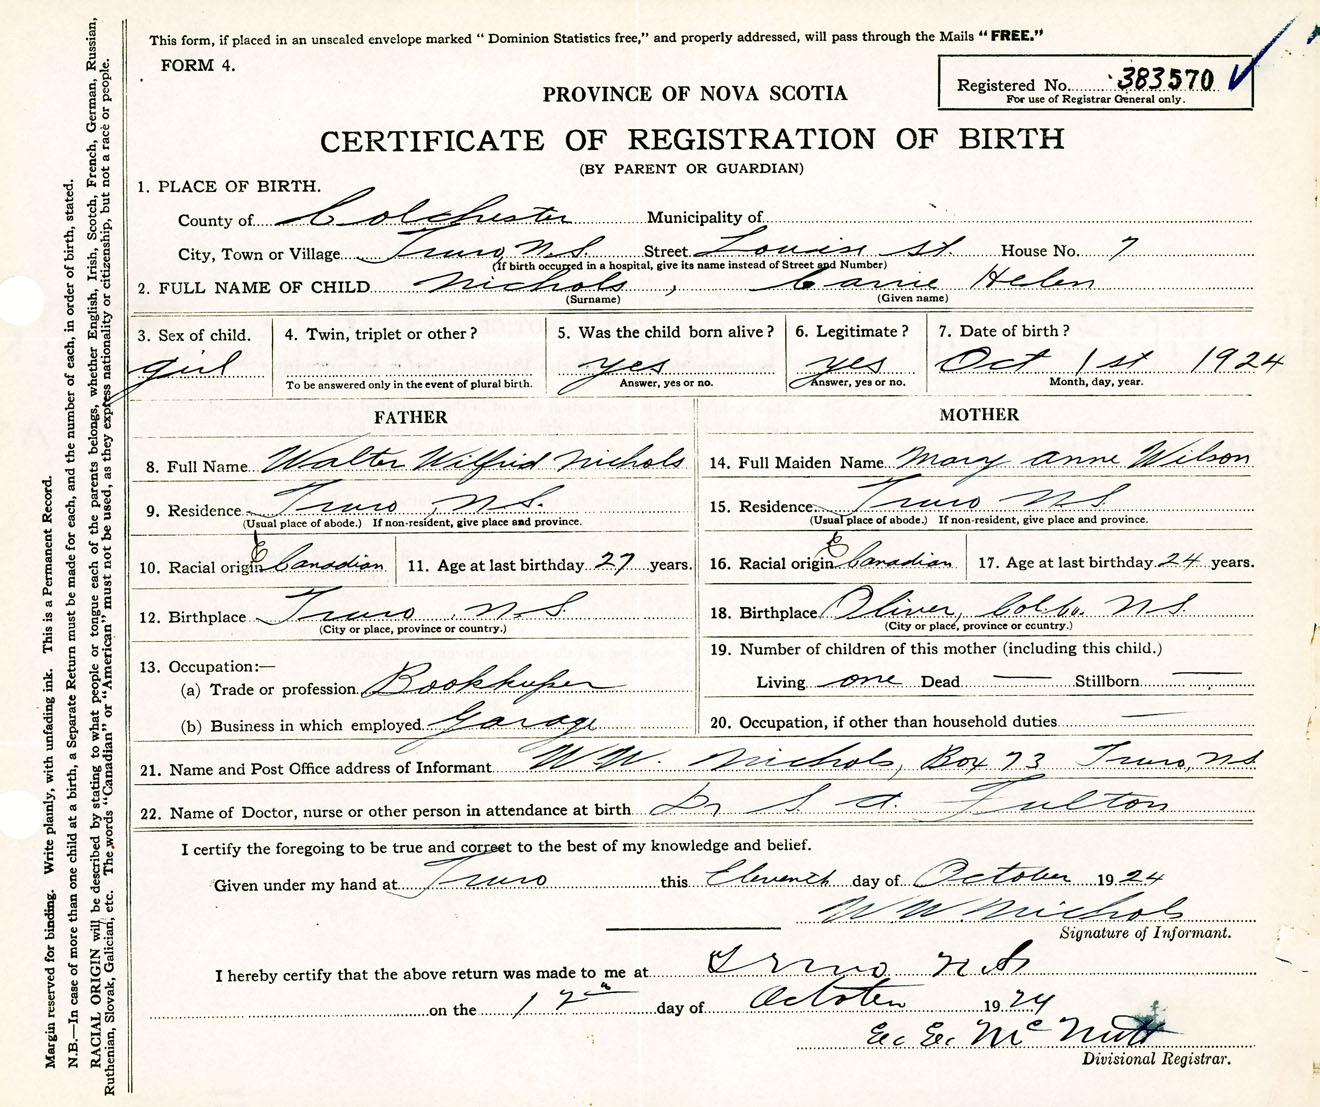 This form, if placed in an unsealed envelope marked “ Dominion Statistics free,” and properly addressed, will pass through the Mails “ FREE.”
FORM 4.
Registered No. 383570
For use of Registrar General only.
PROVINCE OF NOVA SCOTIA
CERTIFICATE OF REGISTRATION OF BIRTH
(BY PARENT OR GUARDIAN)
1. PLACE OF BIRTH.
County of Colchester Municipality of
City, Town or Village Truro N.S. Street Louise St. House No. 7
(If birth occurred in a hospital, give its name instead of Street and Number)
2. FULL NAME OF CHILD Nichols , Carrie Helen
(Surname) (Given name)
3. Sex of child. 4. Twin, triplet or other ? 5. Was the child born alive ? 6. Legitimate ? 7. Date of birth ?
girl yes yes Oct 1st 1924
To be answered only in the event of plural birth. Answer, yes or no. Answer, yes or no. Month, day, year.
FATHER MOTHER
8. Full Name Walter Wilfrid Nichols 14. Full Maiden Name Mary Anne Wilson
9. Residence Truro, N.S. 15. Residence Truro N S
(Usual place of abode.) If non-resident, give place and province. (Usual place of abode.) If non-resident, give place and province.
10. Racial origin Canadian 11. Age at last birthday 27 years. 16. Racial origin Canadian 17. Age at last birthday 24 years.
12. Birthplace Truro, N.S. 18. Birthplace Oliver, Col. Co. N S.
(City or place, province or country.) (City or place, province or country.)
13. Occupation:— 19. Number of children of this mother (including this child.)
(a) Trade or profession Bookkeeper Living one Dead — Stillborn —
(b) Business in which employed Garage 20. Occupation, if other than household duties —
21. Name and Post Office address of Informant W.W. Nichols, Box 73 Truro, N.S.
22. Name of Doctor, nurse or other person in attendance at birth Dr S. A. Fulton
I certify the foregoing to be true and correct to the best of my knowledge and belief.
Given under my hand at Truro this Eleventh day of October 1924
W.W. Nichols
Signature of Informant.
I hereby certify that the above return was made to me at Truro N S
on the 12th day of October 1924
E. E. McNutt
Divisional Registrar.
Margin reserved for binding. Write plainly, with unfading ink. This is a Permanent Record.
N.B.—In case of more than one child at a birth, a Separate Return must be made for each, and the number of each, in order of birth, stated.
RACIAL ORIGIN will be described by stating to what people or tongue each of the parents belongs, whether English, Irish, Scotch, French, German, Russian,
Ruthenian, Slovak, Galician, etc. The words “Canadian” or “American” must not be used, as they express nationality or citizenship, but not a race or people.